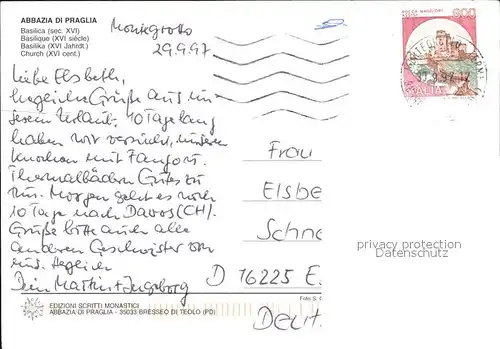 ABBAZIA DI PRAGLIA
Basilica (sec. XVI)
Basilique (XVI siècle)
Basilika (XVI Jahrdt.)
Church (XVI cent.)
Montegrotto
29.9.97
Liebe Elsbeth,
herzliche Grüße aus un-
serem Urlaub. 10 Tage lang
haben wir versucht, unseren
Knochen mit Fango u.
Thermalbädern Gutes zu
tun. Morgen geht es noch
10 Tage nach Davos (CH).
Grüße bitte auch alle
anderen Geschwister von
uns. Herzlich
Dein Martin + Ingeborg
ROCCA MAGGIORE
800
ITALIA
Frau
Elsbe
Schne
D 16225 E
Deut
privacy protection
Datenschutz
Foto S.
EDIZIONI SCRITTI MONASTICI
ABBAZIA DI PRAGLIA - 35033 BRESSEO DI TEOLO (PD)